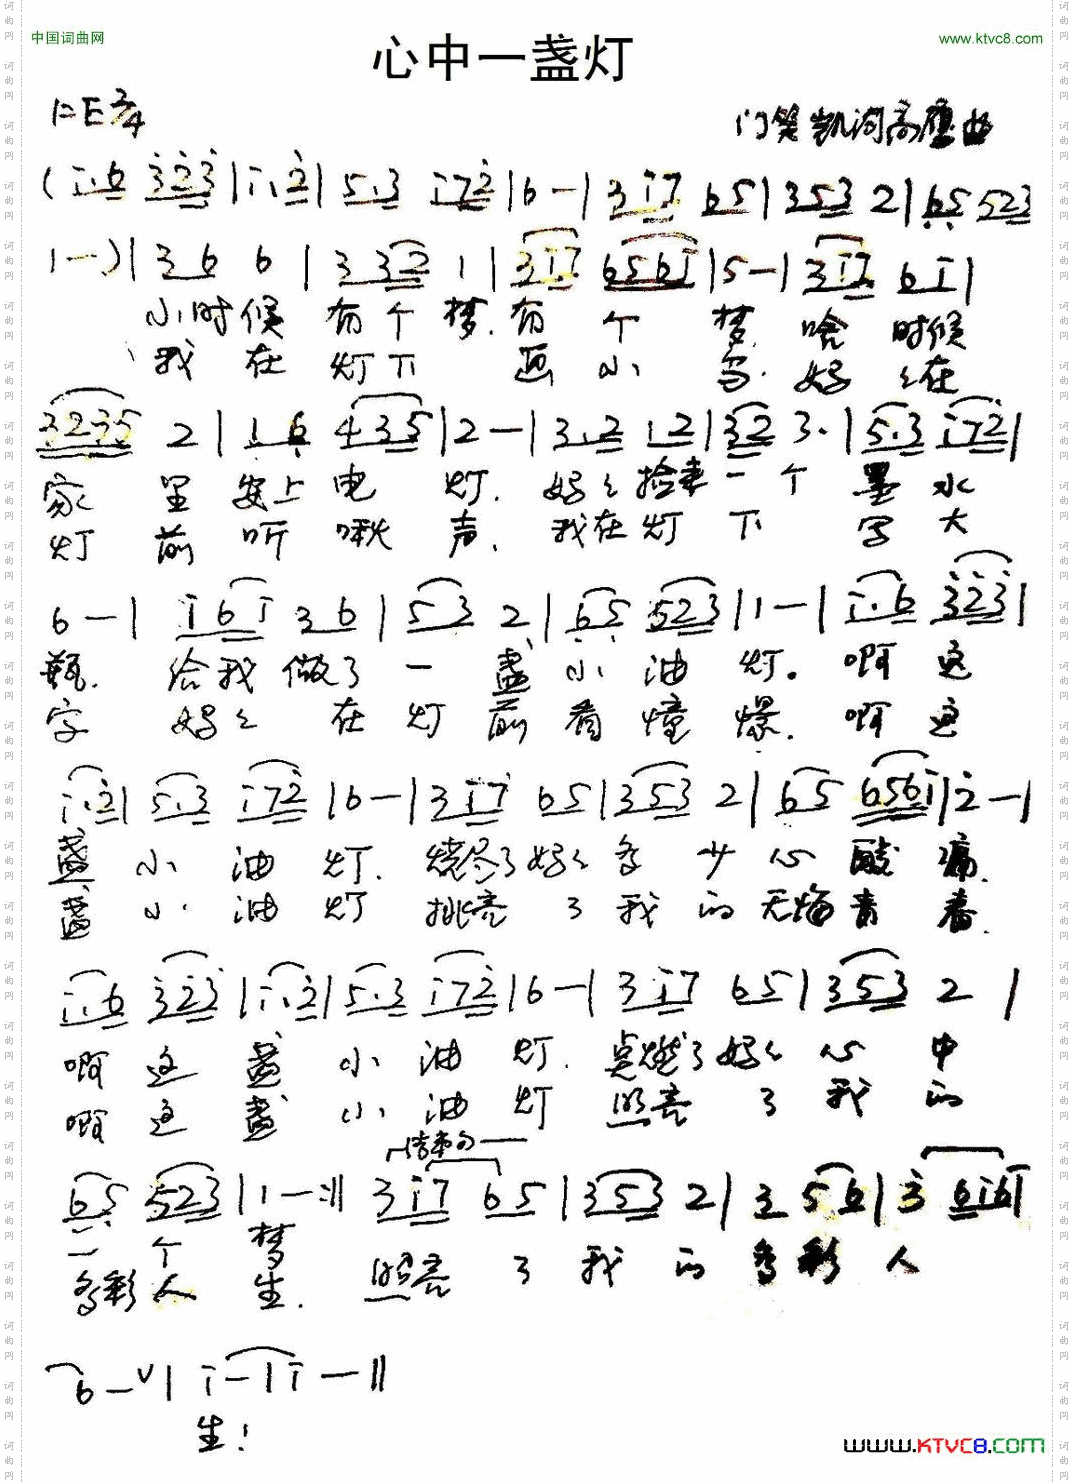 中国词曲网
www.ktvc8.com
心中一盏灯
1=E 2/4
门笑凯词 高 曲
(i.6 323|i.2|5.3 i72|6-|3i7 65|353 2|65 523
1-)|36 6|332 1|3i7 656i|5-|3i7 6i|
小时候 有个梦.有个梦.啥时候
我在灯下画小鸟.妈々在
3235 2|16 435|2-|3.2 12|32 3.|5.3 i72|
家里安上电灯.妈々捡来一个墨水
灯前听啾声.我在灯下写大
6-|i6i 36|53 2|65 523|1-|i.6 323|
瓶.给我做了一盏小油灯。啊这
字 妈々在灯前看 爆.啊这
i.2|5.3 i72|6-|3i7 65|353 2|65 656i|2-|
盏小油灯.烧尽了妈々多少心酸痛.
盏小油灯 挑亮了我的无悔青春.
i.6 323|i.2|5.3 i72|6-|3i7 65|353 2|
啊这盏小油灯.点燃了妈々心中
啊这盏小油灯 照亮了我的
结束句
65 523|1-:‖ 3i7 65|353 2|3 56|3 6i6i|
一个梦
多彩人生.照亮了我的多彩人
6-∨|i-|i-‖
生!
www.KTVC8.com
词曲网